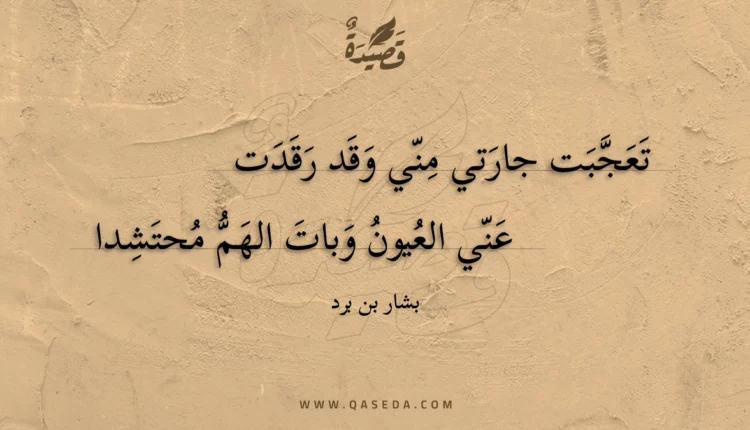 قَصِيدَةٌ
تَعَجَّبَت جارَتي مِنّي وَقَد رَقَدَت
عَنّي العُيونُ وَباتَ الهَمُّ مُحتَشِدا
بشار بن برد
WWW.QASEDA.COM